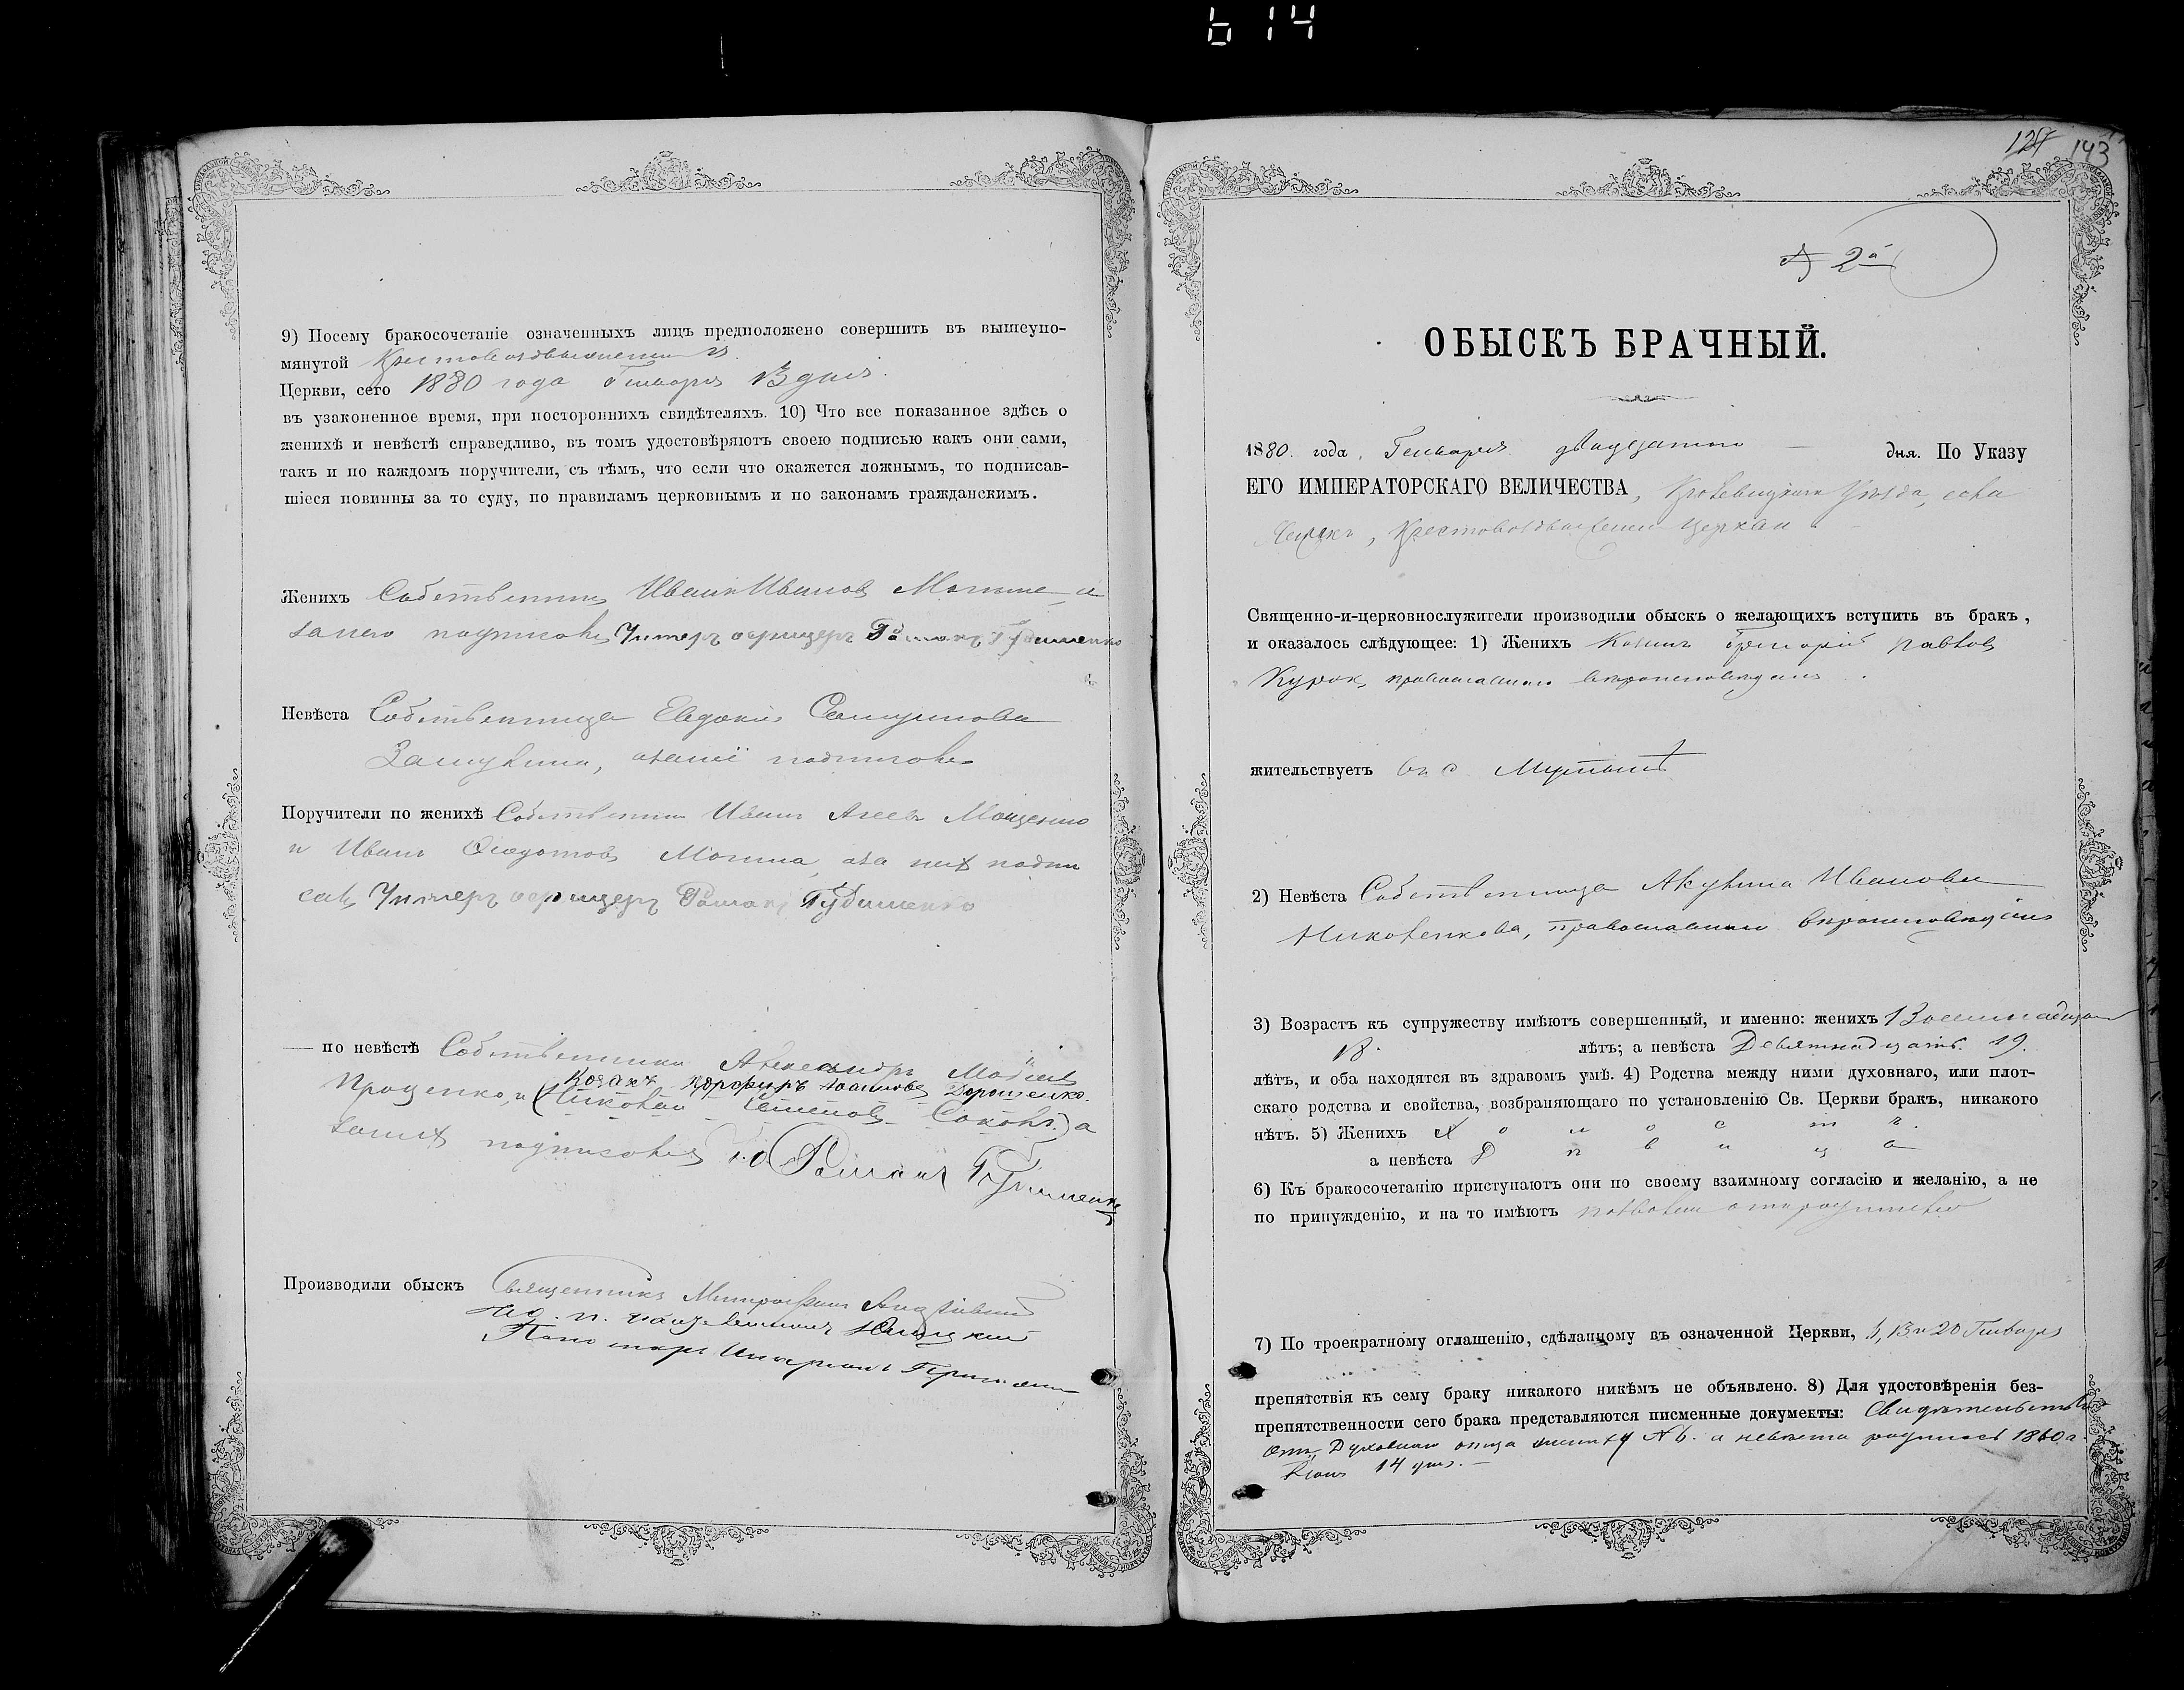 614
9) Посему бракосочетаніе означенныхъ лицъ предположено совершить въ вышеупо-
мянутой Крестовоздвиженской
Церкви, сего 1880 года Генваря 13 дня.
въ узаконенное время, при постороннихъ свидѣтеляхъ. 10) Что все показанное здѣсь о
женихѣ и невѣстѣ справедливо, въ томъ удостовѣряютъ своею подписью какъ они сами,
такъ и по каждомъ поручители, съ тѣмъ, что если что окажется ложнымъ, то подписав-
шіеся повинны за то суду, по правиламъ церковнымъ и по законамъ гражданскимъ.
Женихъ Собственникъ Иванъ Ивановъ а
занего подписовъ Унтеръ офицеръ Романъ Губименко
Невѣста Собственница Евдокія
подписовъ
Поручители по женихѣ Собственники Иванъ Агеевъ Мощенко
и Иванъ Федотовъ а за нихъ подпи
савъ Унтеръ офицеръ Романъ Губименко
— по невѣстѣ Собственники Александръ
Проценко, и Козакъ Порфиръ Дорошенко.
(Николай Семеновъ) а
занихъ подписовъ Романъ Губименко
Производили обыскъ Священникъ Митрофанъ

Пономарь
129 143
№ 2й
ОБЫСКЪ БРАЧНЫЙ.
1880. года. Генваря двадцатого — дня. По Указу
ЕГО ИМПЕРАТОРСКАГО ВЕЛИЧЕСТВА, Кролевецкаго Уѣзда, села
Крестовоздвиженской церкви
Священно-и-церковнослужители производили обыскъ о желающихъ вступить въ бракъ,
и оказалось слѣдующее: 1) Женихъ Козакъ Григорій Павловъ
Курок, православнаго вѣроисповѣданія.
жительствуетъ въ с. Мутынѣ
2) Невѣста Собственница Акулина Иванова
Николенкова, православнаго вѣроисповѣданія
3) Возрастъ къ супружеству имѣютъ совершенный, и именно: женихъ Восемнадцать
18. лѣтъ; а невѣста Девятнадцать. 19.
лѣтъ, и оба находятся въ здравомъ умѣ. 4) Родства между ними духовнаго, или плот-
скаго родства и свойства, возбраняющаго по установленію Св. Церкви бракъ, никакого
нѣтъ. 5) Женихъ Х о л о с т ъ.
а невѣста Д ѣ в и ц а
6) Къ бракосочетанію приступаютъ они по своему взаимному согласію и желанію, а не
по принужденію, и на то имѣютъ
7) По троекратному оглашенію, сдѣланному въ означенной Церкви, 6, 13 и 20 Генваря
препятствія къ сему браку никакого никѣмъ не объявлено. 8) Для удостовѣренія без-
препятственности сего брака представляются писменные документы: Свидетельство
отъ Духовнаго отца жениху № 6. а невѣста родилась 1860 г.
Іюня 14 дня. —